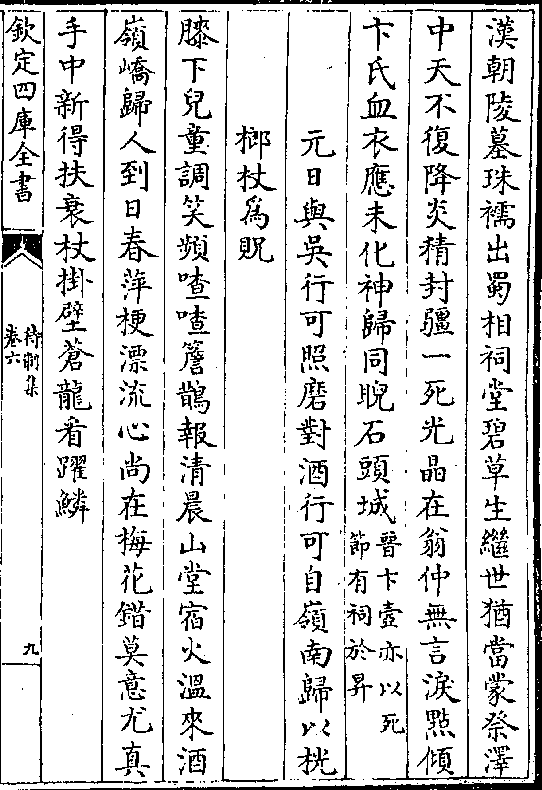 漢朝陵墓珠襦出蜀相祠堂碧草生繼世猶當蒙祭澤
中天不復降炎精封疆一死光晶在翁仲無言淚㸃傾
卞氏血衣應未化神歸同睨石頭城晉卞壼亦以死
節有祠於昇
元日與吳行可照磨對酒行可自嶺南歸以桄
榔杖為貺
膝下兒童調笑頻喳喳簷鵲報清晨山堂宿火溫來酒
嶺嶠歸人到日春萍梗漂流心尚在梅花錯莫意尤真
手中新得扶衰杖掛壁蒼龍看躍鱗
欽定四庫全書
待制集
卷六
九